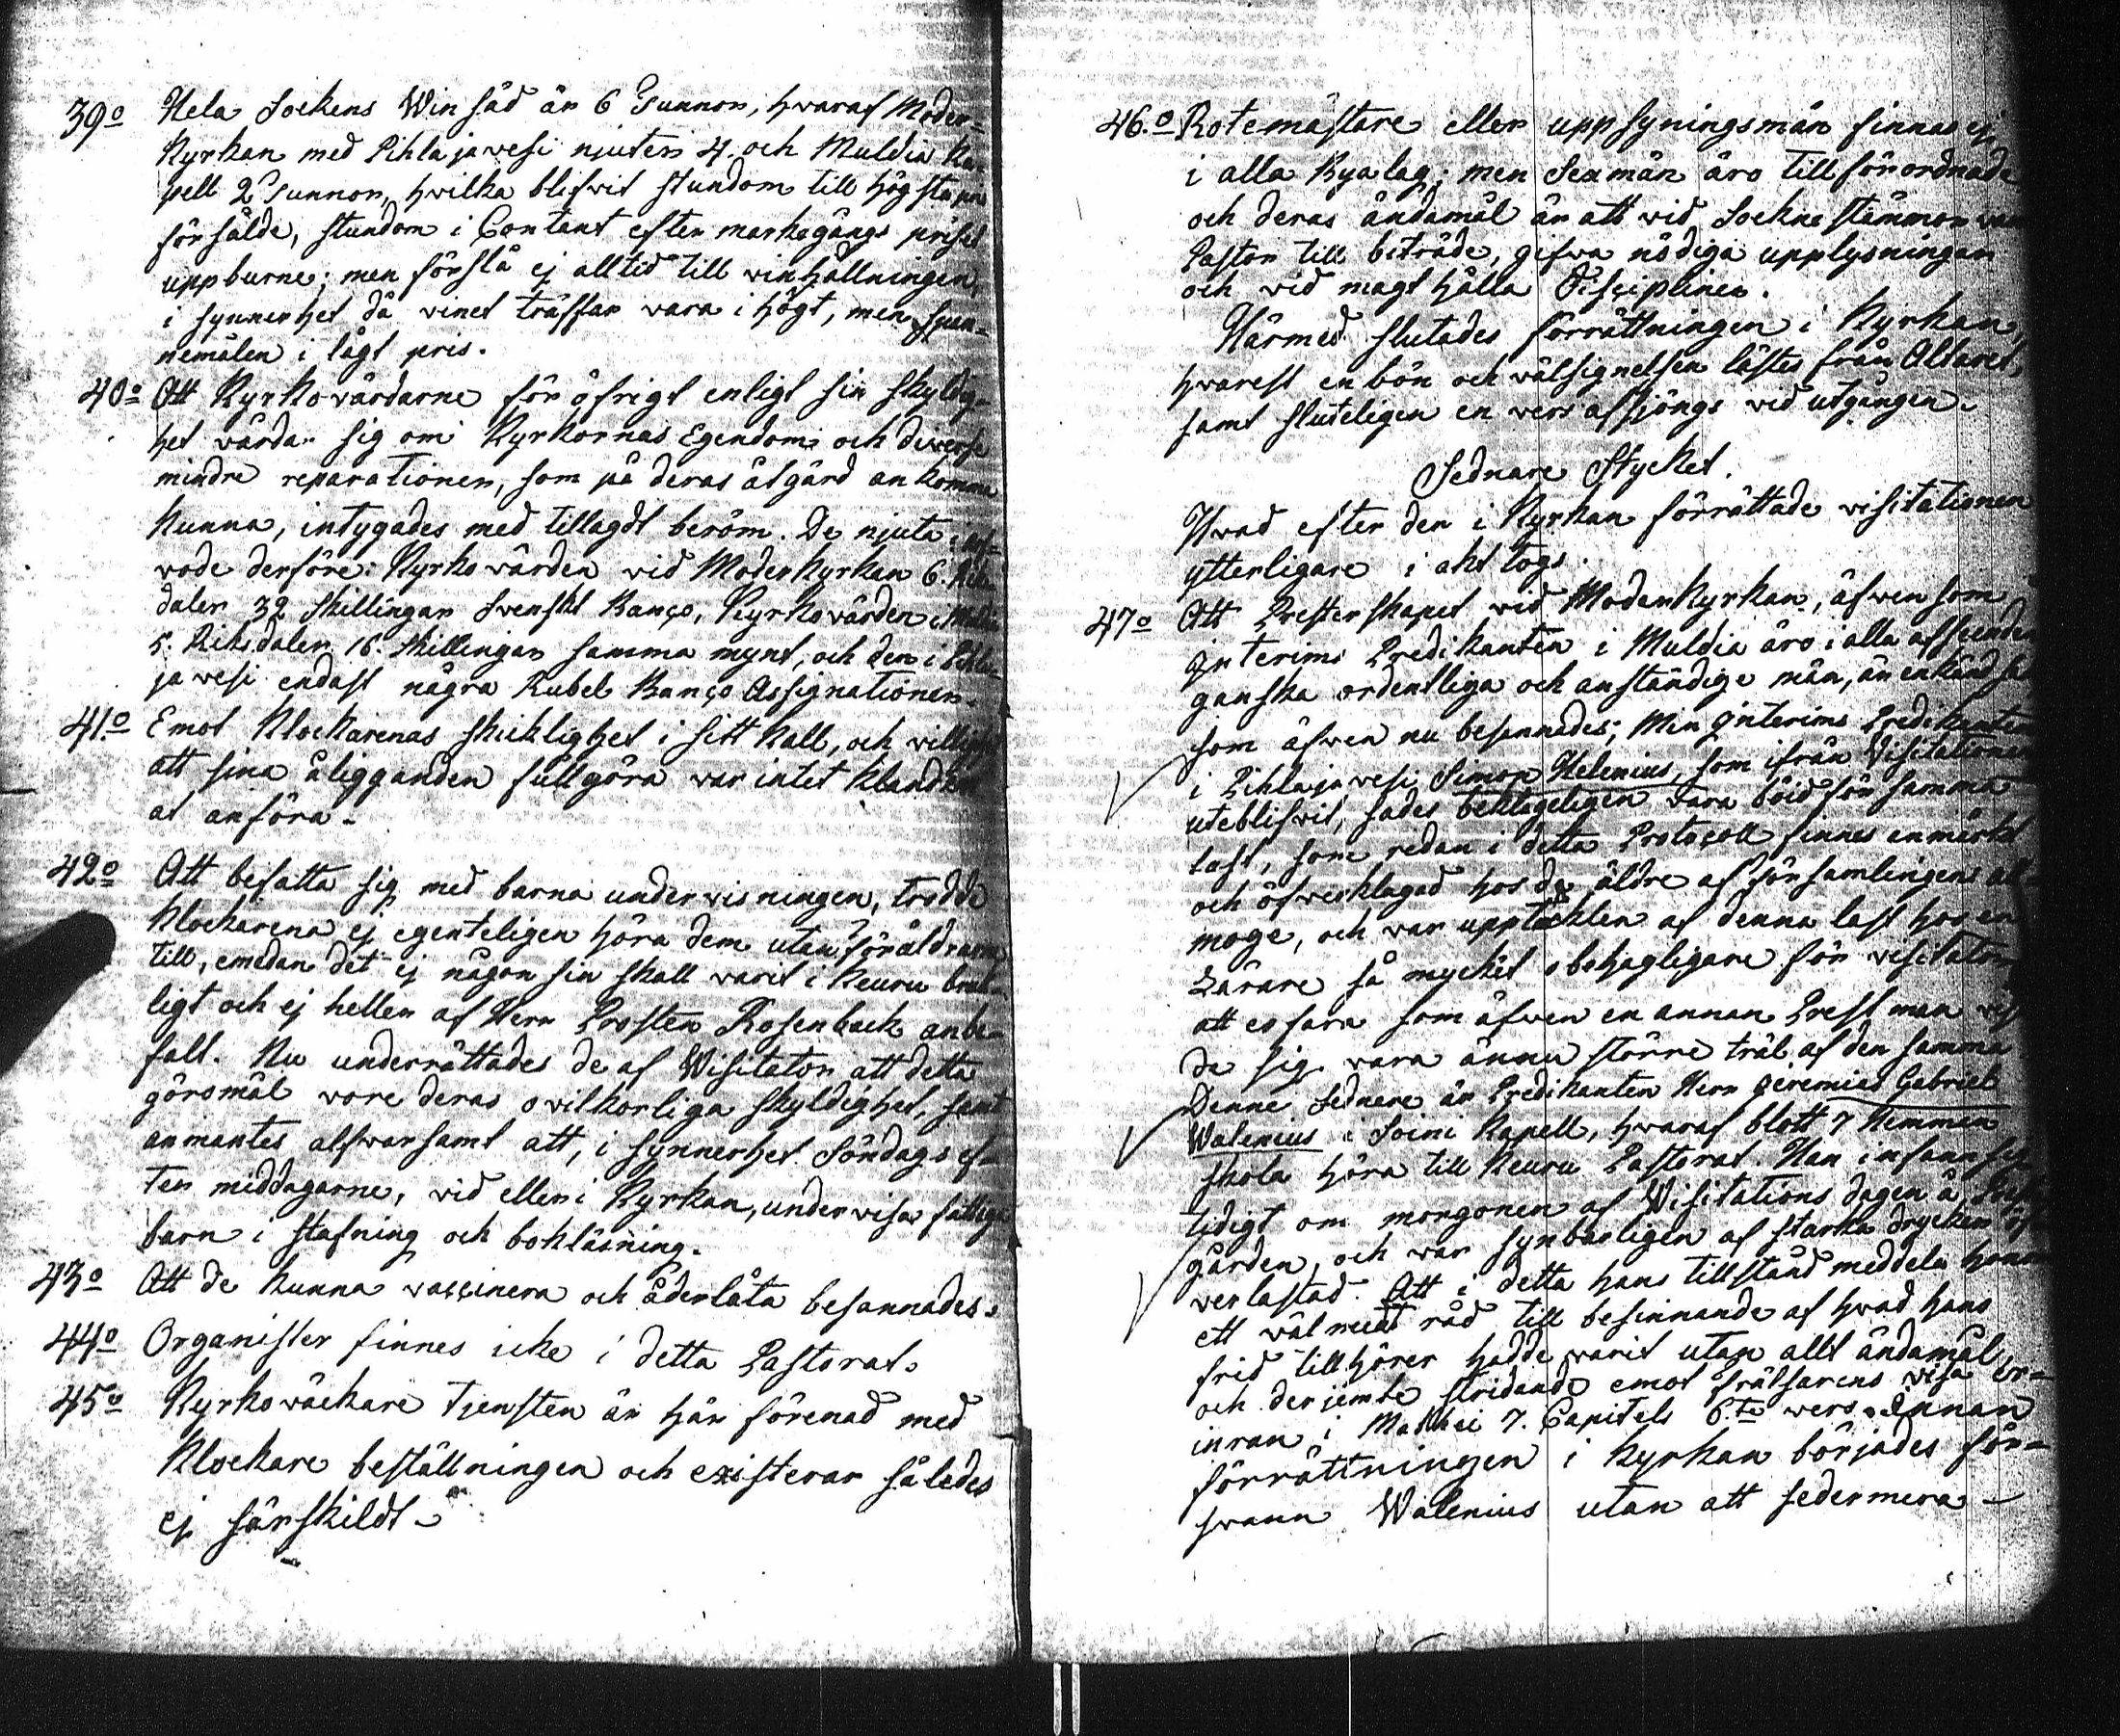 39o Hela Sockens Winsäd är 6 Tunnor, hwaraf Moder-
Kyrkan med Pihlajavesi njuter 4. och Muldia Ka-
pell 2 Tunnor, hwilka blifwit stundom till högsta
försålde, stundom i Contant efter markegångs priset
uppburne; men förslå ej alltid till vinhållningen,
i synnerhet då vinet träffar vara i högt, men span-
nemålen i lågt pris.
40o Att Kyrkovärdarne för öfrigt enligt sin skyldig-
het vårda sig om Kyrkornas Egendom och diverse
mindre reparationer, som på deras åtgärd ankomma
kunna, intygades med tillagdt beröm. De njuta i ar-
vode derföre: Kyrkovärden vid Moderkyrkan 6. Riks
daler 32 Skillingar Svenskt Banço, Kyrkovärden i Muldia
5. Riksdaler 16. Skillingar samma mynt, och den i Pihla-
javesi endast några Rubel Banço Assignationer.
41o Emot Klockarenas skicklighet i sitt kall, och willighet
att sina åligganden fullgöra var intet klander
at anföra.
42o Att befatta sig med barna undervisningen, trodde
Klockarena ej egenteligen höra dem utan föräldrarne
till, emedan det ej någonsin skall varit i Keuru bruk-
ligt och ej heller af Herr Prosten Rosenback anbe-
falt. Nu underrättades de af Visitator att detta
görsmål vore deras ovilkorliga skyldighet, samt
anmantes alfwarsamt att, i synnerhet Söndags ef-
ter middagarne, vid eller i Kyrkan, undervisa fattiga
barn i stafning och bokläsning.
43o Att de kunna vaccinera och åderlåta besannades.
44o Organister finnes icke i detta Pastorat.
45o Kyrkoväckare tjensten är här förenad med
Klockare beställningen och existerar således
ej särskildt.
46.o Rotemästare eller uppsyningsmän finnas ej
i alla Byalag; men Sexmän äro tillförordnade
och deras ändamål är att vid Sockne stämmor vara
Pastor till biträde, gifwa nödiga upplysningar
och vid magt hålla Disciplinen.
Härmed slutades förrättningen i Kyrkan,
hvarest en bön och välsignelsen lästes från Altaret,
samt sluteligen en vers afsjöngs vid utgången.
Sednare Stycket.
Hvad efter den i Kyrkan förrättade visitationen
ytterligare i akt togs.
47o Att Presterskapet vid Moderkyrkan, äfwensom
Interims Predikanten i Muldia äro i alla afseenden
ganska ordentliga och anständige män, är en känd sak
som äfwen nu besannades; Men Interims Predikanten
i Pihlajavesi Simon Helenius, som ifrån Visitationen
uteblifvit, sades beklageligen vara böjd för samma
last, som redan i detta Protocoll finnes enmärkt
och öfverklagad hos de äldre af församlingens al-
moge, och var upptäckten af denna last hos en
Lärare så mycket obehagligare för visitator,
att erfara som äfwen en annan Prestman vis-
de sig vara ännu större träl af den samma
Denne sednare är Predikanten Herr Jeremias Gabriel
Walenius i Soini Kapell, hwaraf blott 7 Hemman
skola höra till Keuru Pastorat. Han infann sig
tidigt om morgonen af Visitations dagen å Prest
gården, och war synbarligen af starka drycker öf-
verlastad. Att i detta hans tillstånd meddela honom
ett välment råd till besinnande af hvad hans
frid tillhörer hadde varit utan allt ändamål
och derjemte stridande emot Frälsarens visa er-
inran i Mathei 7. Capitels 6.te vers. Innan
förrättningen i Kyrkan börjades för-
swann Walenius utan att sedermera